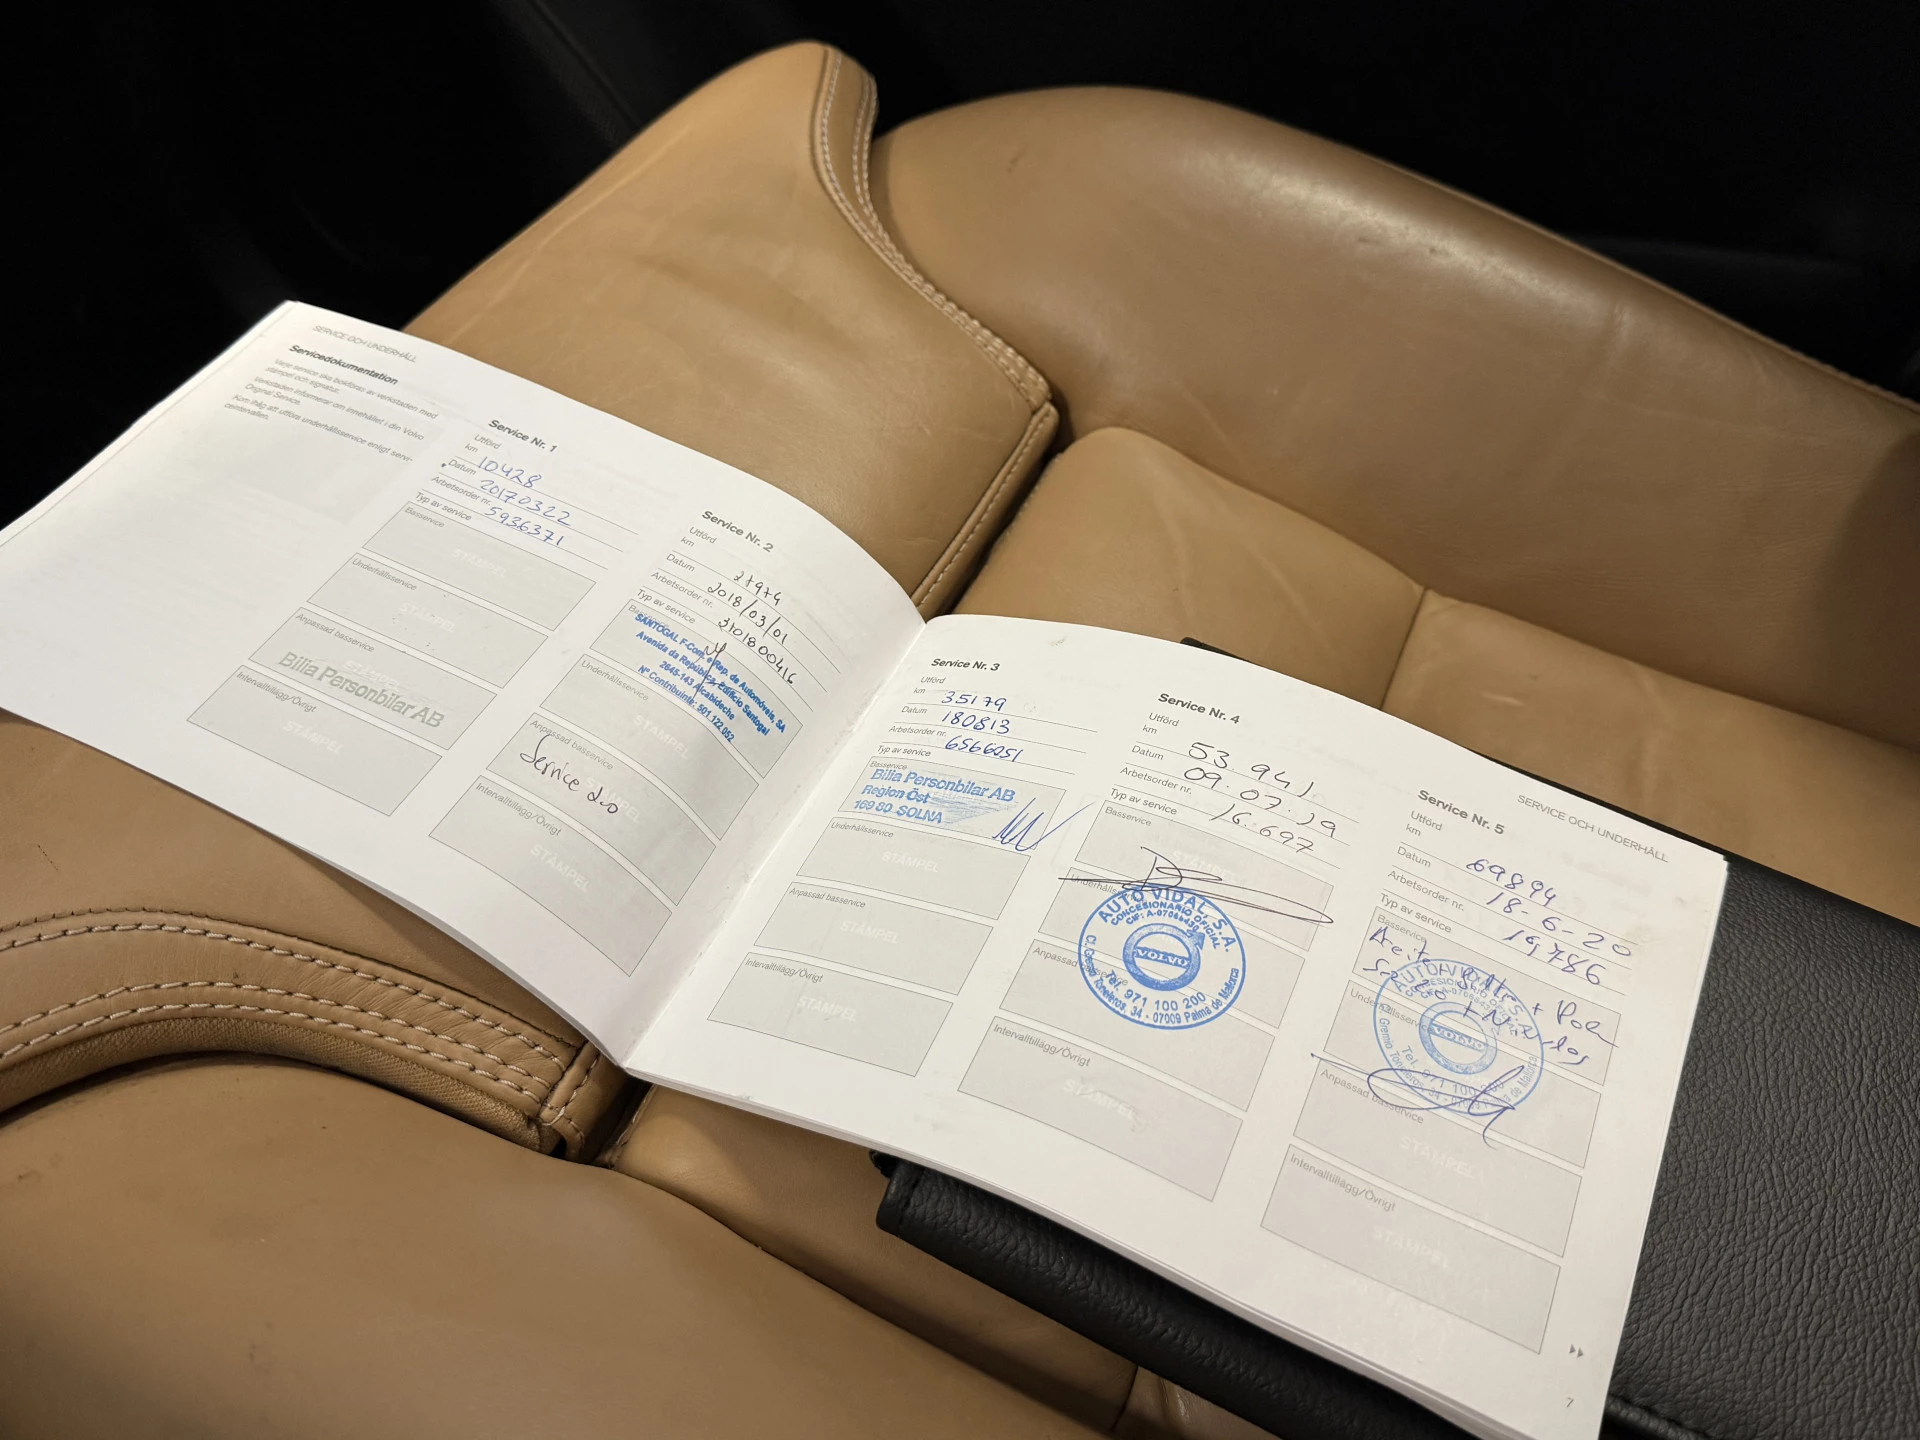 SERVICE OCH UNDERHÅLL
Servicedokumentation
Varje service ska bokföras av verkstaden med
stämpel och signatur.
Verkstaden informerar om innehållet i din Volvo
Original Service.
Kom ihåg att utföra underhållsservice enligt servi-
ceintervallen.
Service Nr. 1
Utförd
km 10428
Datum 20170322
Arbetsorder nr. 5936371
Typ av service
Basservice
STÄMPEL
Underhållsservice
STÄMPEL
Anpassad basservice
STÄMPEL
Bilia Personbilar AB
Intervalltillägg/Övrigt
STÄMPEL
Service Nr. 2
Utförd
km 27974
Datum 2018/03/01
Arbetsorder nr. 2701800416
Typ av service
SANTOGAL F-Com. e Rep. de Automóveis, SA
Avenida da República, Edifício Santogal
2645-143 Alcabideche
Nº Contribuinte: 501 122 052
Underhållsservice
STÄMPEL
Anpassad basservice
STÄMPEL
Service 2.0
Intervalltillägg/Övrigt
STÄMPEL
Service Nr. 3
Utförd
km 35179
Datum 180813
Arbetsorder nr. 6566051
Typ av service
Basservice
Bilia Personbilar AB
Region Öst
169 80 SOLNA
Underhållsservice
STÄMPEL
Anpassad basservice
STÄMPEL
Intervalltillägg/Övrigt
STÄMPEL
Service Nr. 4
Utförd
km 53.941
Datum 09.07.19
Arbetsorder nr. 16.697
Typ av service
Basservice
STÄMPEL
Underhållsservice
AUTO VIDAL, S.A.
CONCESIONARIO OFICIAL
VOLVO
Tel. 971 100 200
C/. Gremio Toneleros, 34 - 07009 Palma de Mallorca
Anpassad basservice
Intervalltillägg/Övrigt
STÄMPEL
SERVICE OCH UNDERHÅLL
Service Nr. 5
Utförd
km 69894
Datum 18-6-20
Arbetsorder nr. 19,786
Typ av service
Basservice
Underhållsservice
AUTO VIDAL, S.A.
CONCESIONARIO OFICIAL
VOLVO
Tel. 971 100 200
Anpassad basservice
STÄMPEL
Intervalltillägg/Övrigt
STÄMPEL
7